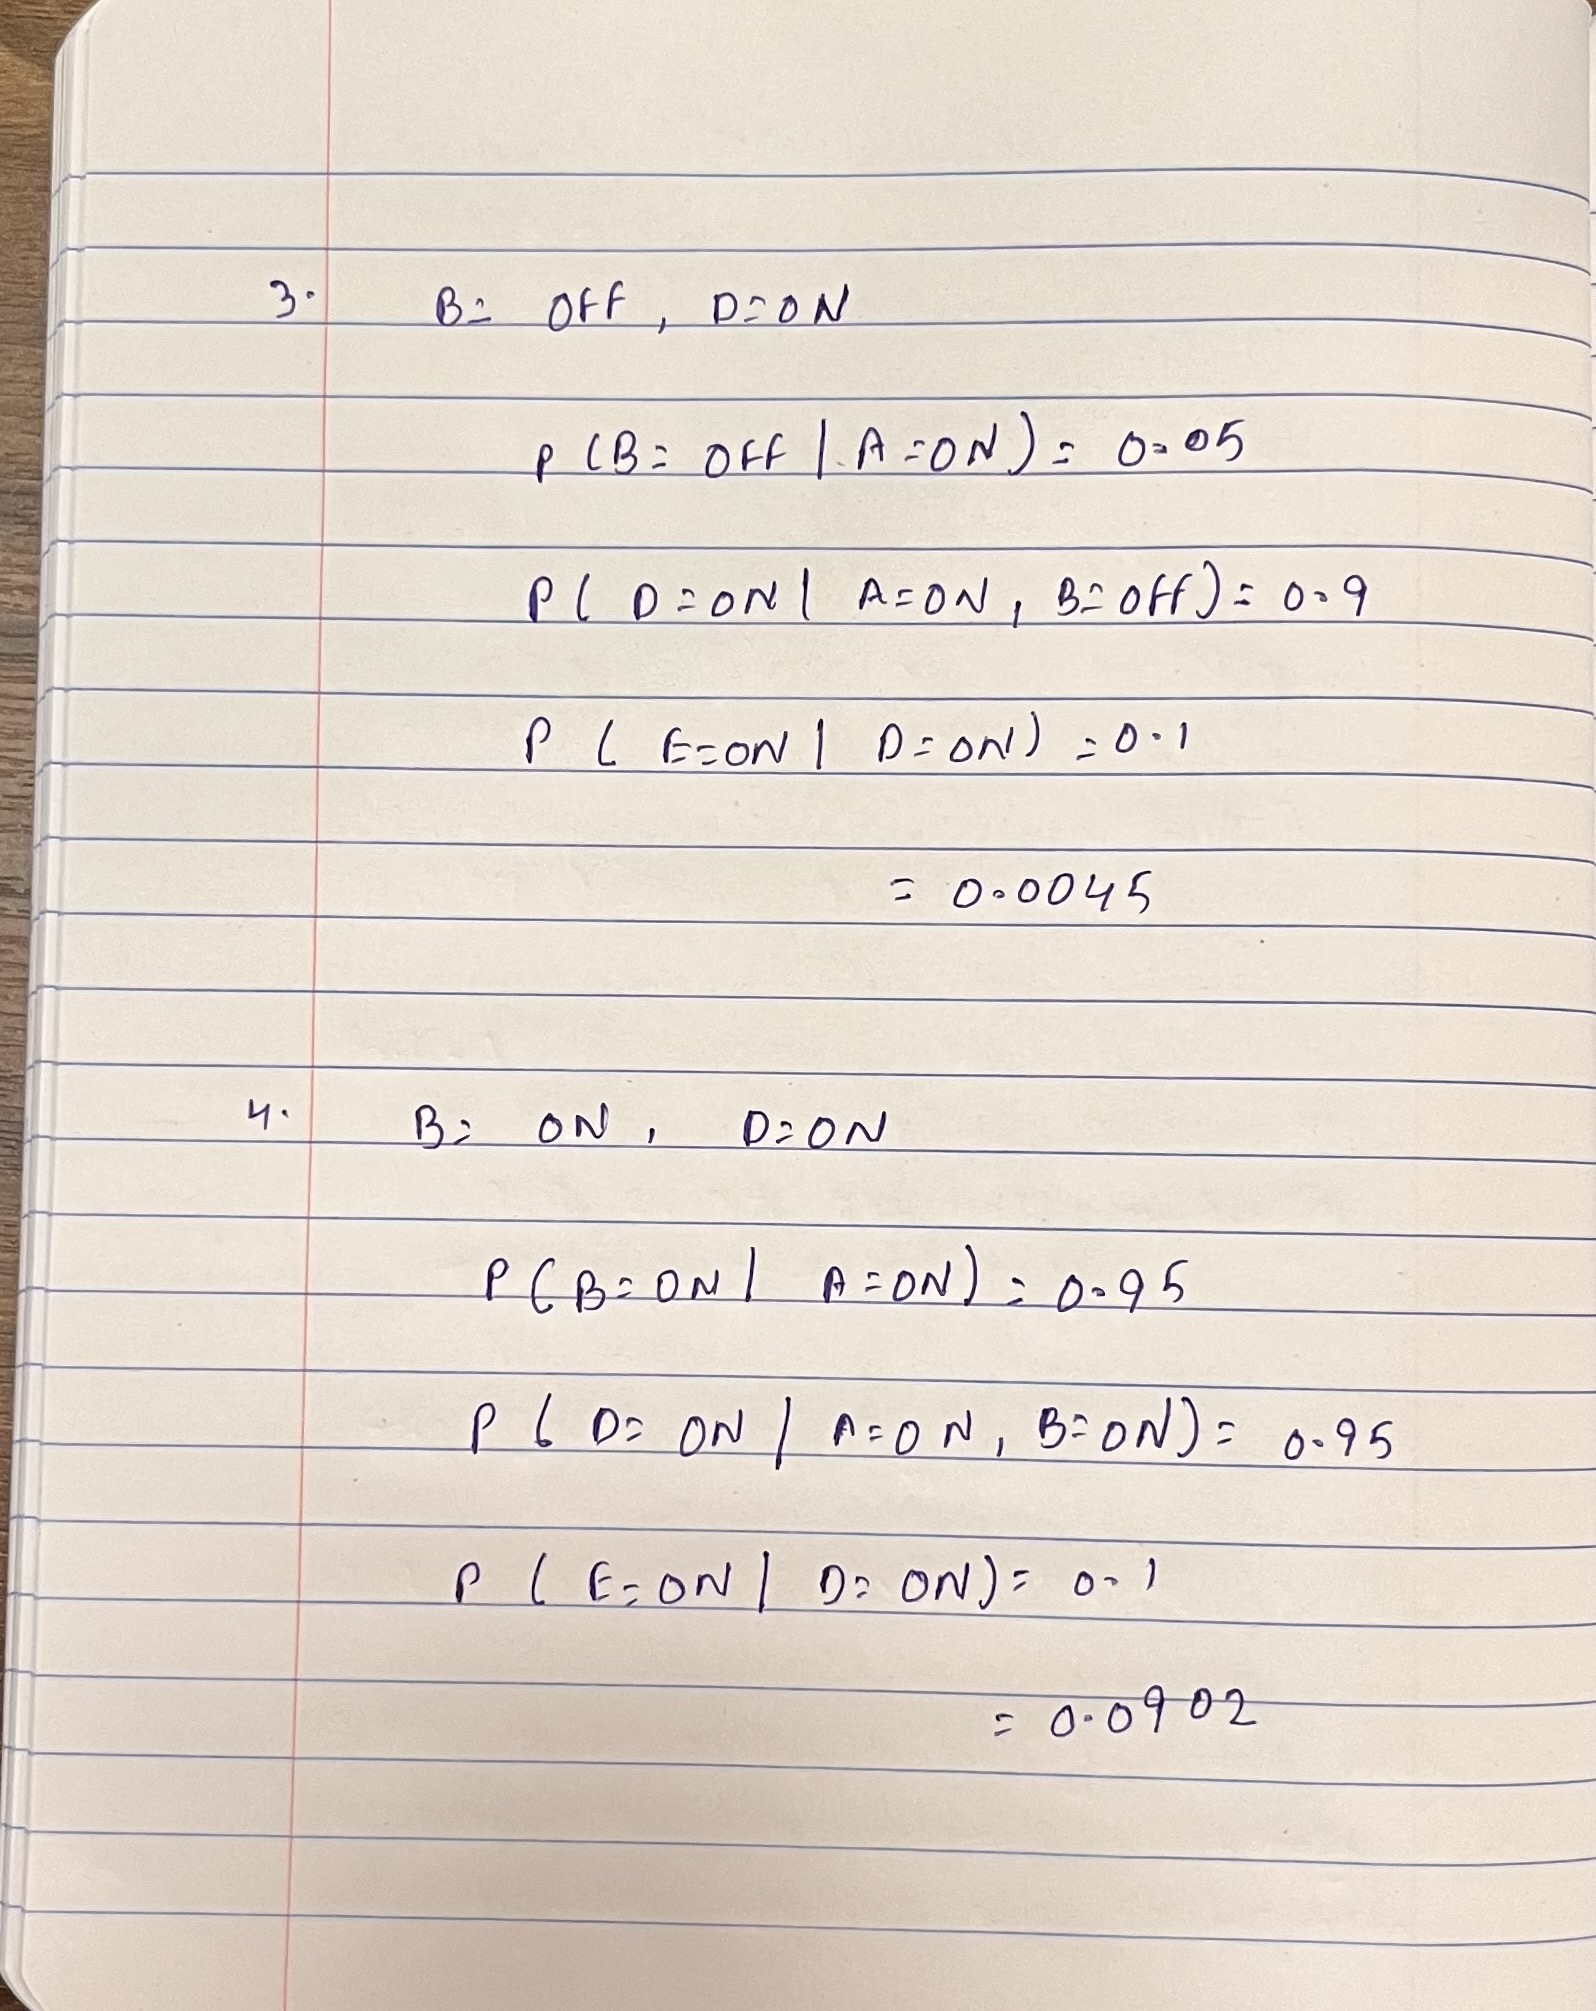 3. B = OFF, D = ON
P (B = OFF | A = ON) = 0.05
P ( D = ON | A = ON, B = OFF) = 0.9
P ( E = ON | D = ON) = 0.1
= 0.0045
4. B = ON, D = ON
P (B = ON | A = ON) = 0.95
P ( D = ON | A = ON, B = ON) = 0.95
P ( E = ON | D = ON) = 0.1
= 0.0902